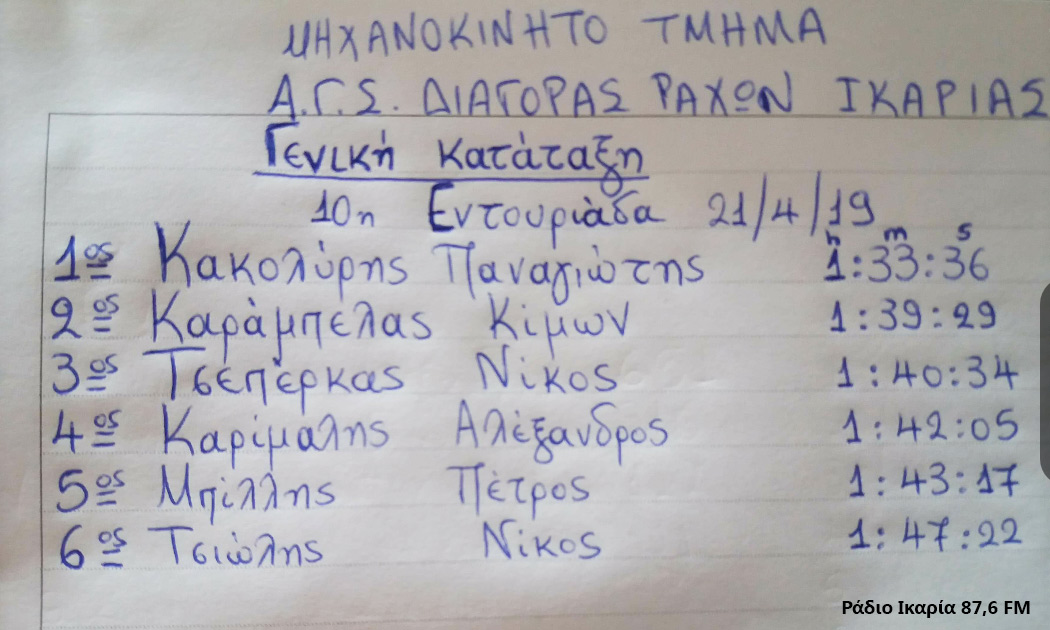 ΜΗΧΑΝΟΚΙΝΗΤΟ ΤΜΗΜΑ
Α.Γ.Σ. ΔΙΑΓΟΡΑΣ ΡΑΧΩΝ ΙΚΑΡΙΑΣ
Γενική κατάταξη
10η Εντουριάδα 21/4/19
h m s
1ος Κακολύρης Παναγιώτης 1:33:36
2ος Καράμπελας Κίμων 1:39:29
3ος Τσεπέρκας Νίκος 1:40:34
4ος Καρίμαλης Αλέξανδρος 1:42:05
5ος Μπίλλης Πέτρος 1:43:17
6ος Τσιώλης Νίκος 1:47:22
Ράδιο Ικαρία 87,6 FM